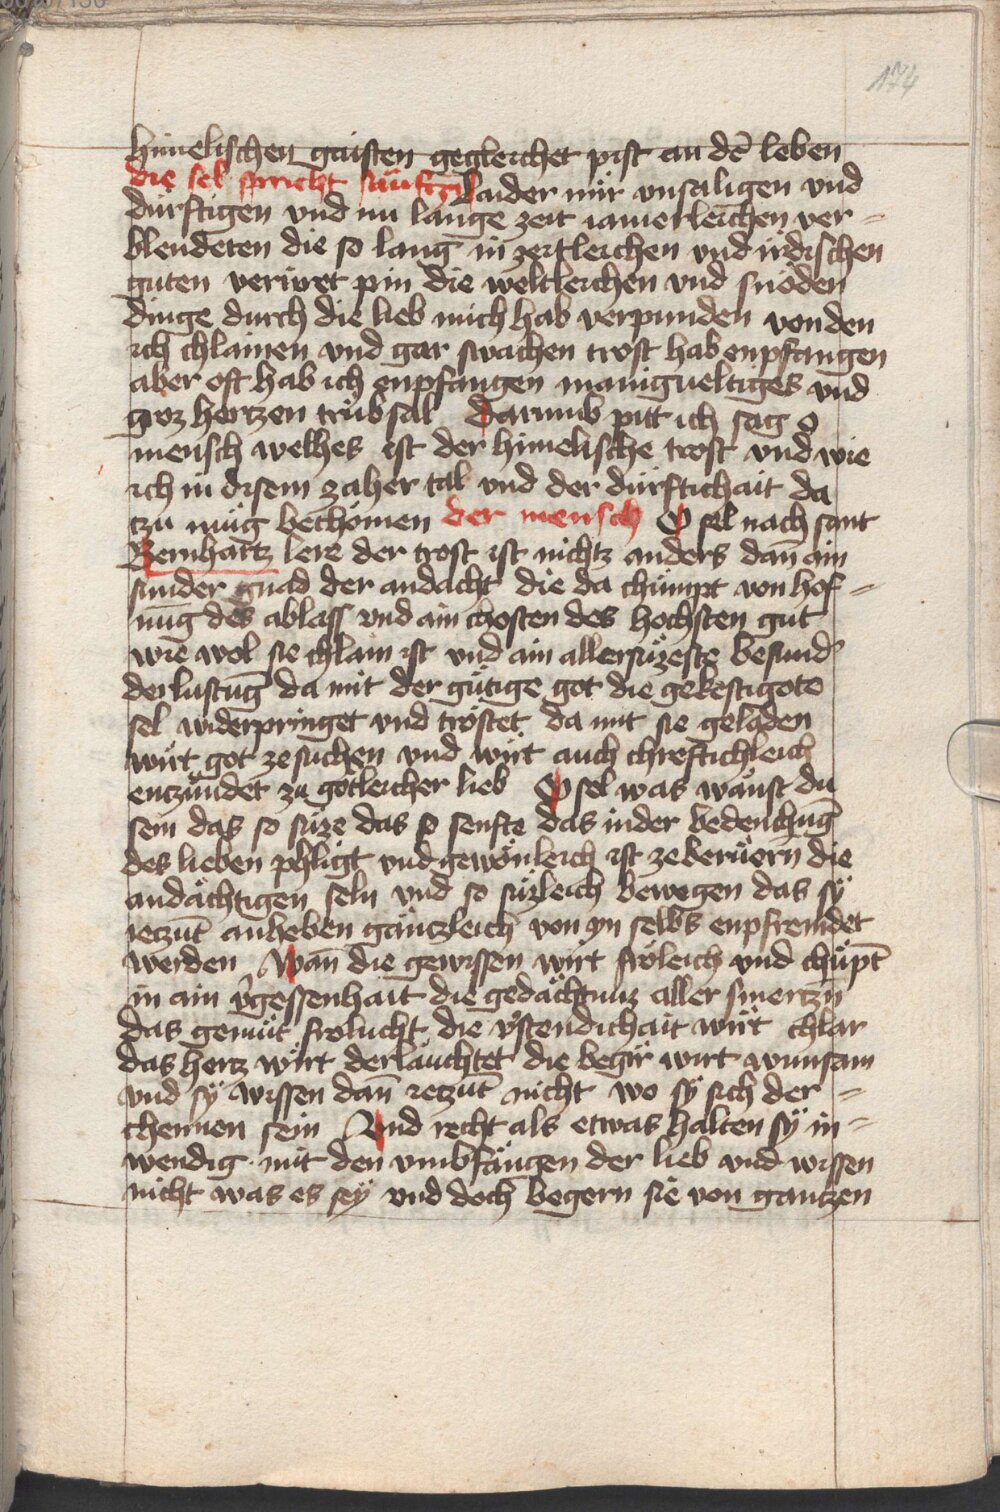 174
himelischen gaisten gegleichet pist an dē leben
die sel spricht säuftzn̄ Laider mir vnsaligen vnd
dürftigen vnd nu lange zeit iamerleichen ver-
blendeten die so lang in zertleichen vnd irdischen
guten veriret pin die weltleichen vnd snöden
dinge durch die lieb mich hab verpunden von den
ich chlainen vnd gar swachen trost hab enpfangen
aber oft hab ich enpfangen manigueltiges vnd
groz hertzen trübsal Darumb pitt ich sag o
mensch welhes ist der himelische trost vnd wie
ich in disem zaher tal vnd der dürftichait da
tzu müg bechömen der mensch O sel nach sant
Bernhartz lere der trost ist nichtz anders dan̄ ain
sunder gnad der andacht die da chümpt von hof-
nūg des ablass vnd ain chosten des hochsten gut
wie wol sie chlain ist vnd ain allersüzeste besund̾
derlustūg da mit der gütige got die gekestigote
sel widerpringet vnd tröstet da mit sie geladen
wirt got ze suchen vnd wirt auch chreftichleich
enczündet zu götleicher lieb O sel was wänst du
sein das so süze das so senfte das in der bedenchūg
des lieben phligt vnd gewönleich ist ze berüern die
andächtigen seln vnd so süzleich bewegen das sÿ
ieczūt anheben gänczleich von yn selbs enpfremdet
werden Wan̄ die gewissen wirt fröleich vnd chüpt̄
in ain v̾gessenhait die gedächtnuz aller smertzn̄
das gemüt frolucht die v̾stendichait wirt chlar
das hertz wirt derläuchtet die begir wirt wunsam
vnd sÿ wissen dan̄ ieczūt nicht wo sÿ sich der-
chennen sein Vnd recht als etwas halten sÿ in-
wendig mit den vmbfängen der lieb vnd wissen
nicht was es seÿ vnd doch begern sie von gantzen